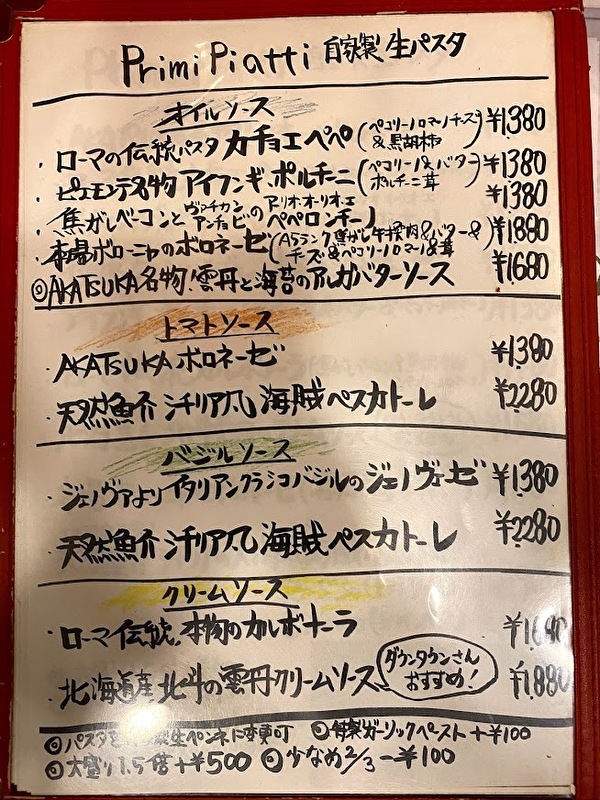 Primi Piatti 自家製 生パスタ
オイルソース
・ローマの伝統パスタ カチョエペペ(ペコリーノロマーノチーズ&黒胡椒) ¥1,380
・ピエモンテ名物 アイフンギ、ポルチーニ(ペコリーノ&バター ポルチーニ茸) ¥1,380
・焦がしベーコンとヴァチカンアンチョビのアーリオ・オーリオ・エペペロンチーノ ¥1,380
・本場ボローニャのボロネーゼ(A5ランク焦がし牛挽肉&バター&チーズ&ペコリーノロマーノ&茸) ¥1,880
◎AKATSUKA名物!雲丹と海苔のアルガバターソース ¥1,680
トマトソース
・AKATSUKA ボロネーゼ ¥1,380
・天然魚介 シチリア風 海賊ペスカトーレ ¥2,280
バジルソース
・ジェノヴァよりイタリアンクラシコバジルのジェノヴェーゼ ¥1,380
・天然魚介 シチリア風 海賊ペスカトーレ ¥2,280
クリームソース
・ローマ伝統、本物のカルボナーラ ¥1,680
・北海道産 北斗の雲丹クリームソース ダウンタウンさんおすすめ! ¥1,880
◎パスタを 製生ペンネに変更可 ◎特製ガーリックペースト+¥100
◎大盛り1.5倍+¥500 ◎少なめ2/3 ー¥100